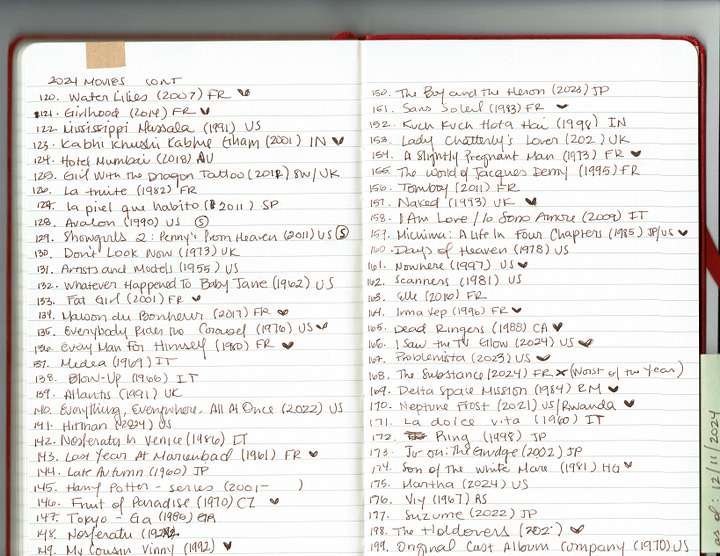 2024 MOVIES CONT
120. Water Lilies (2007) FR ♥
121. Girlhood (2014) FR ♥
122. Mississippi Massala (1991) US
123. Kabhi Khushi Kabhie Gham (2001) IN ♥
124. Hotel Mumbai (2018) AU
125. Girl With the Dragon Tattoo (2011) SW/UK
126. La truite (1982) FR
127. La piel que habito (2011) SP
128. Avalon (1990) US Ⓢ
129. Showgirls 2: Penny's From Heaven (2011) US Ⓢ
130. Don't Look Now (1973) UK
131. Artists and Models (1955) US
132. Whatever Happened To Baby Jane (1962) US
133. Fat Girl (2001) FR ♥
134. Maison du Bonheur (2017) FR ♥
135. Everybody Rides the Carousel (1976) US ♥
136. Every Man For Himself (1980) FR ♥
137. Medea (1969) IT
138. Blow-Up (1966) IT
139. Atlantis (1991) UK
140. Everything, Everywhere, All At Once (2022) US
141. Hitman (2024) US
142. Nosferatu In Venice (1986) IT
143. Last Year At Marienbad (1961) FR ♥
144. Late Autumn (1960) JP
145. Harry Potter - series (2001- )
146. Fruit of Paradise (1970) CZ ♥
147. Tokyo-Ga (1985) GR
148. Nosferatu
149. My Cousin Vinny (1992) ♥
150. The Boy and the Heron (2023) JP
151. Sans Soleil (1983) FR ♥
152. Kuch Kuch Hota Hai (1998) IN
153. Lady Chatterly's Lover (202 ) UK
154. A Slightly Pregnant Man (1973) FR ♥
155. The World of Jacques Demy (1995) FR
156. Tomboy (2011) FR
157. Naked (1993) UK ♥
158. I Am Love / Io Sono Amore (2009) IT
159. Michima: A Life In Four Chapters (1985) JP/US ♥
160. Days of Heaven (1978) US
161. Nowhere (1997) US ♥
162. Scanners (1981) US
163. Elle (2016) FR
164. Irma Vep (1996) FR ♥
165. Dead Ringers (1988) CA ♥
166. I Saw the TV Glow (2024) US ♥
167. Problemista (2023) US ♥
168. The Substance (2024) FR X (Worst of the Year)
169. Delta Space Mission (1984) RM ♥
170. Neptune Frost (2021) US/Rwanda ♥
171. La dolce vita (1960) IT
172. Ring (1998) JP
173. Ju-on: The Grudge (2002) JP
174. Son of the White Mare (1981) HG ♥
175. Martha (2024) US
176. Viy (1967) RS
177. Suzume (2022) JP
198. The Holdovers (202 ) ♥
199. Original Cast Album Company (1970) US
as of: 12/11/2024